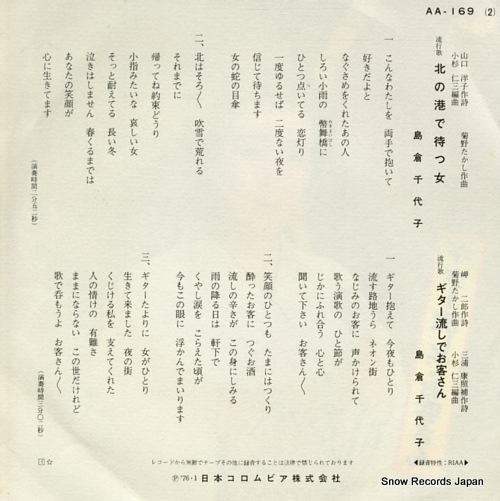 AA-169 (2)
山口 洋子作詩
小杉 仁三編曲
菊野たかし作曲
流行歌
北の港で待つ女
島倉千代子
一 こんなわたしを 両手で抱いて
好きだよと
なぐさめをくれたあの人
しろい小雨の 幣舞橋に
ひとつ点いてる 恋灯り
一度ゆるせば 二度ない夜を
信じて待ちます
女の蛇の目傘
二、北はそろ〳〵 吹雪で荒れる
それまでに
帰ってね約束どうり
小指みたいな 哀しい女
そっと耐えてる 長い冬
泣きはしません 春くるまでは
あなたの笑顔が
心に生きてます
(演奏時間二分五二秒)
岬 二郎作詩
菊野たかし作曲
三浦 康照補作詩
小杉 仁三編曲
流行歌
ギター流しでお客さん
島倉千代子
一 ギター抱えて 今夜もひとり
流す路地うら ネオン街
なじみのお客に 声かけられて
歌う演歌の ひと節が
じかにふれ合う 心と心
聞いて下さい お客さん〳〵
二、笑顔のひとつも たまにはつくり
酔ったお客に つぐお酒
流しの辛さが この身にしみる
雨の降る日は 軒下で
くやし涙を こらえた頃が
今もこの眼に 浮かんでまいります
三、ギターたよりに 女がひとり
生きて来ました 夜の街
くじける私を 支えてくれた
人の情けの 有難さ
ままにならない この世だけれど
歌で呑もうよ お客さん〳〵
(演奏時間三分〇二秒)
◀録音特性:RIAA▶
レコードから無断でテープその他に録音することは法律で禁じられております
Ⓟ'76・1 日本コロムビア株式会社
☆
Snow Records Japan